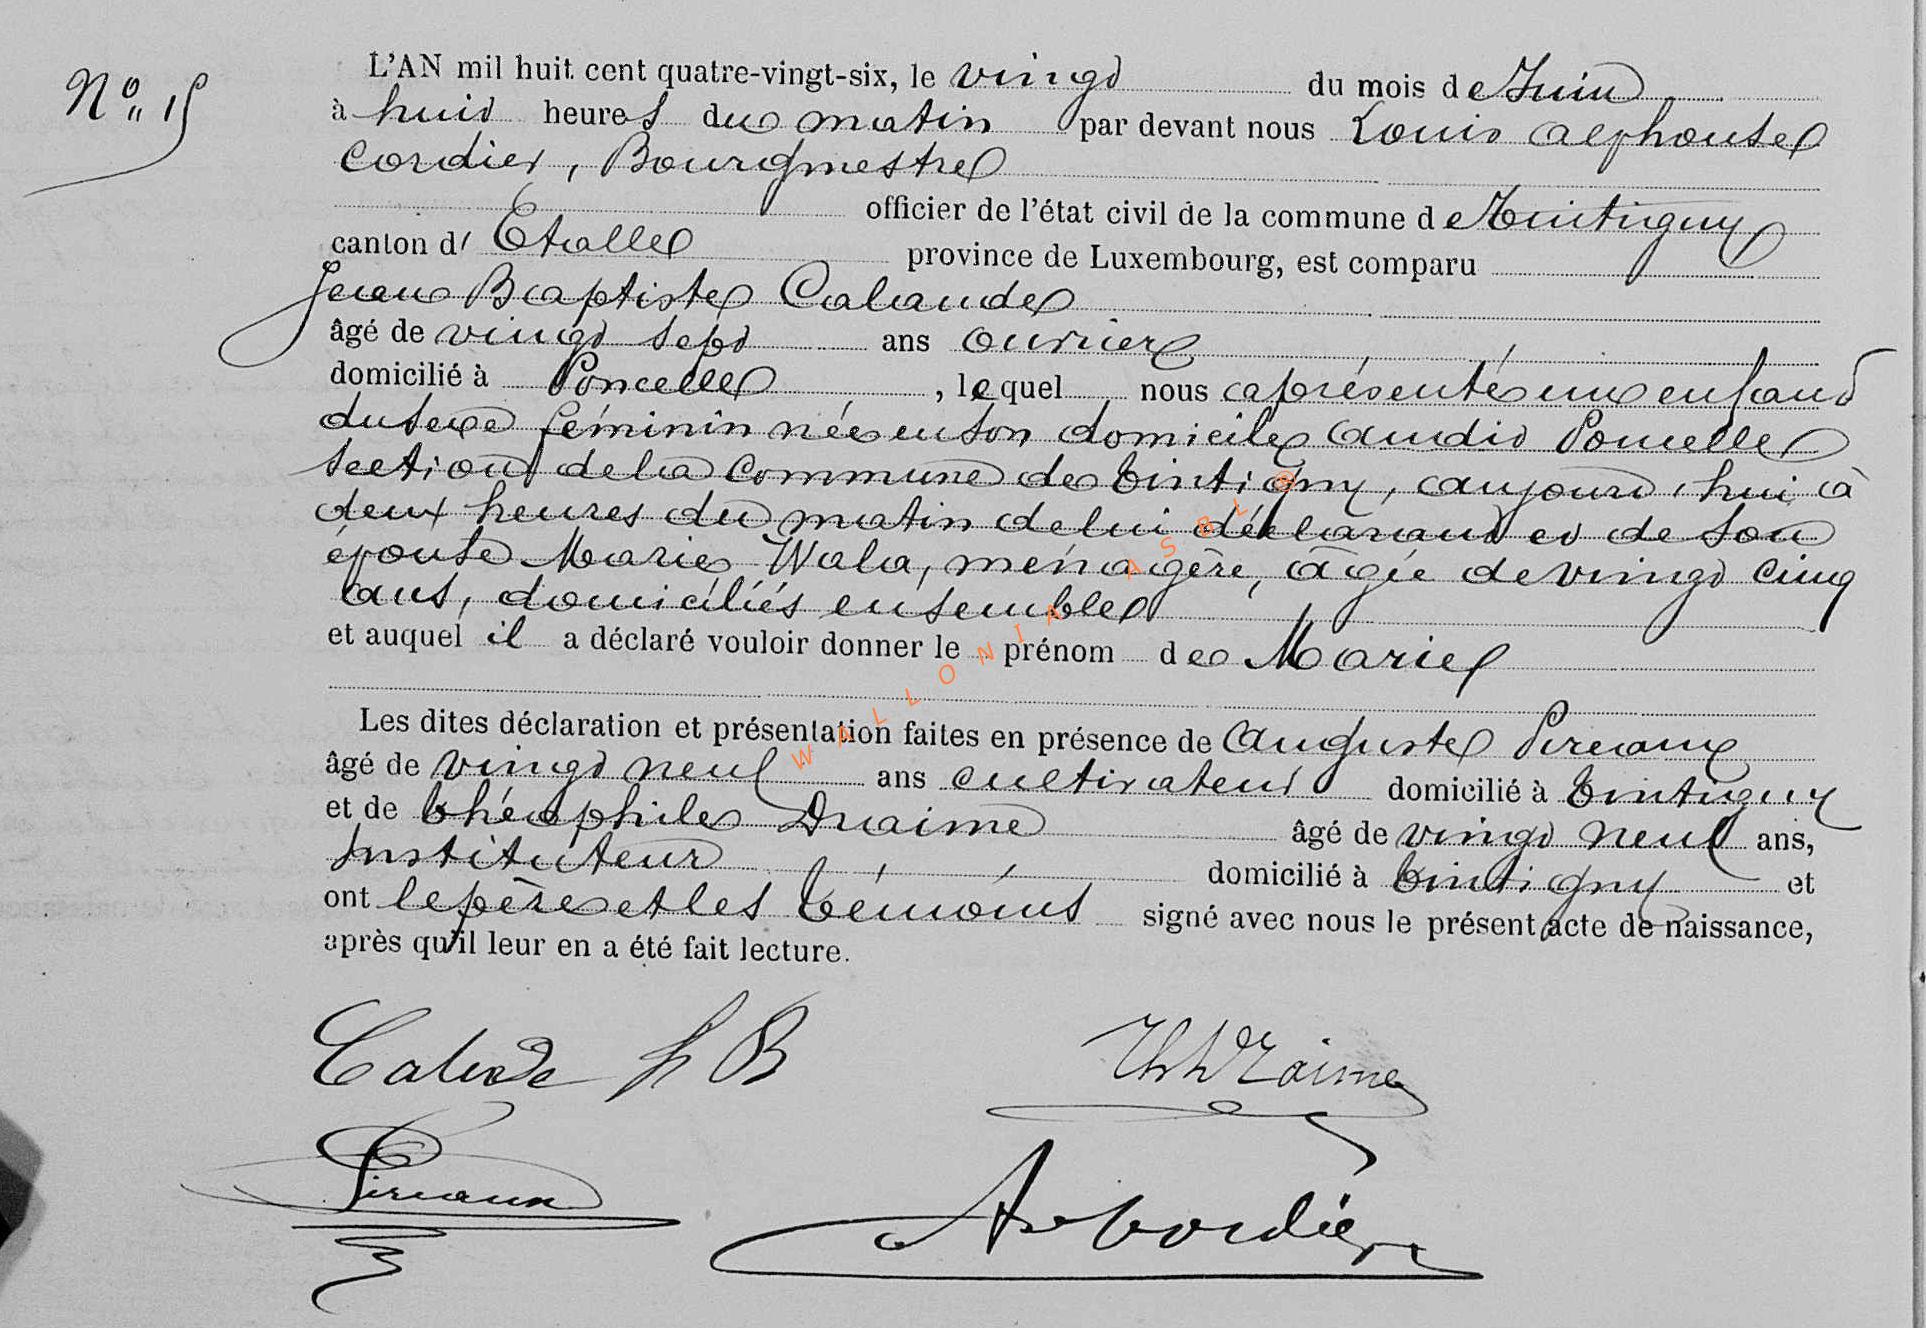 N° 15
L'AN mil huit cent quatre-vingt-six, le vingt du mois de Juin
à huit heures du matin par devant nous Louis Alphonse
Cordier, Bourgmestre
officier de l'état civil de la commune de Tintigny
canton d' Etalle province de Luxembourg, est comparu
Jean Baptiste Calande
âgé de vingt sept ans ouvrier
domicilié à Poncelle, lequel nous a présenté un enfant
du sexe féminin née en son domicile audit Poncelle
section de la commune de Tintigny, aujourd'hui à
deux heures du matin de lui déclarant et de son
épouse Marie Wala, ménagère, âgée de vingt cinq
ans, domiciliés ensemble
et auquel il a déclaré vouloir donner le prénom de Marie
Les dites déclaration et présentation faites en présence de Auguste Pireaux
âgé de vingt neuf ans cultivateur domicilié à Tintigny
et de Théophile Draime âgé de vingt neuf ans,
Instituteur domicilié à Tintigny et
ont le père et les témoins signé avec nous le présent acte de naissance,
après qu'il leur en a été fait lecture.
WALLONIA ASBL ©
Calande J B
Th Draime
Pireaux
Cordier